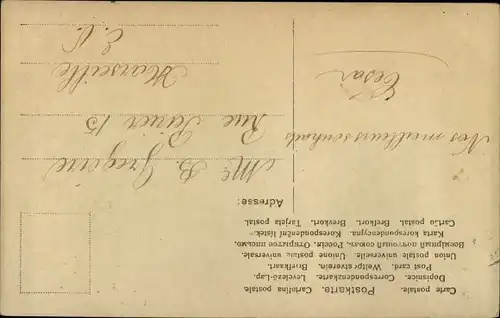 Carte postale. Postkarte. Cartolina postale.
Dopisnice. Correspondenzkarte. Levelező-Lap.
Post card. Weltpostverein. Briefkaart.
Union postale universelle. Unione postale universale.
Всемірный почтовый союзъ. Россія. Открытое письмо.
Karta korespondencyjna. Korespondenční lístek.
Cartão postal. Brefkort. Brevkort. Tarjeta postal.
Adresse:
Nos meilleurs souhaits
César
Mr B. Gregoire
Rue Périer 15
Marseille
E. V.